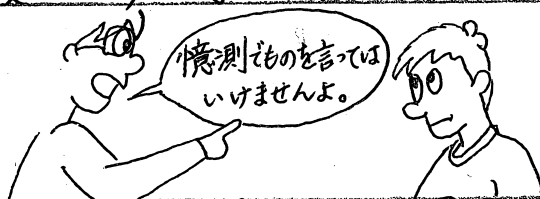 憶測でものを言っては
いけませんよ。